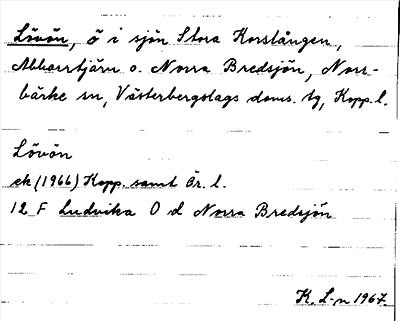 Lövön, ö i sjön Stora Korslången,
Abborrtjärn o. Norra Bredsjön, Norr-
bärke sn, Västerbergslags doms. tg, Kopp. l.
Lövön
ek (1966) Kopp. samt Ör. l.
12 F Ludvika O d Norra Bredsjön
K. L-n 1967.